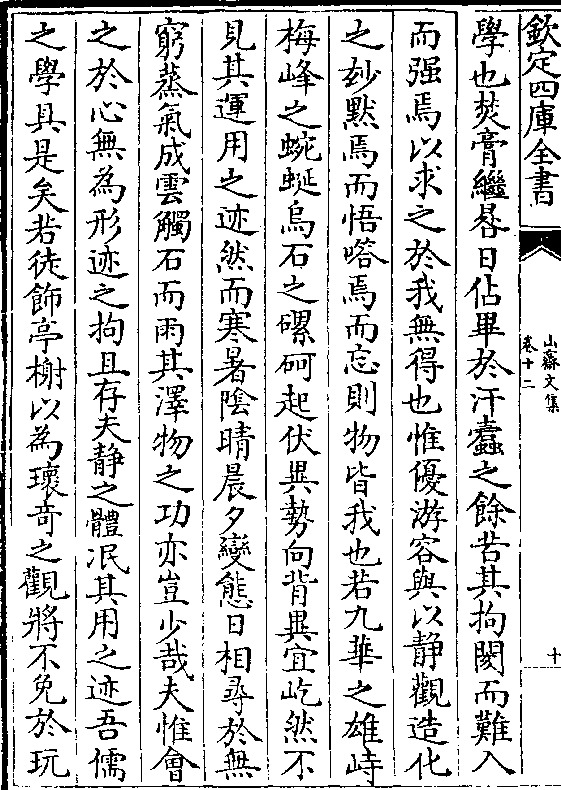 欽定四庫全書
山齋文集
卷十二
十
學也焚膏繼晷日佔畢於汗蠹之餘苦其拘閡而難入
而强焉以求之於我無得也惟優游容與以靜觀造化
之妙默焉而悟嗒焉而忘則物皆我也若九華之雄峙
梅峰之蜿蜒烏石之磥砢起伏異勢向背異宜屹然不
見其運用之迹然而寒暑陰晴晨夕變態日相尋於無
窮蒸氣成雲觸石而雨其澤物之功亦豈少哉夫惟會
之於心無為形迹之拘且存夫靜之體泯其用之迹吾儒
之學具是矣若徒飾亭榭以為瓌奇之觀將不免於玩